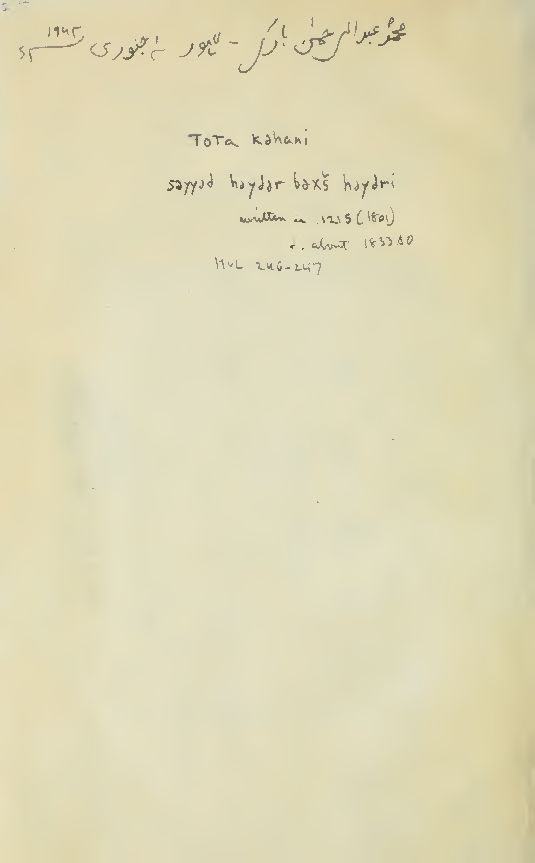 محمد عبدالرحمن بارکر - لاہور ۲۰ جنوری ۱۹۴۲ء
Tota kəhani
səyyəd həydər bəxš həydəri
written in 1215 (1801)
d. about 1833 AD
HUL 246-247